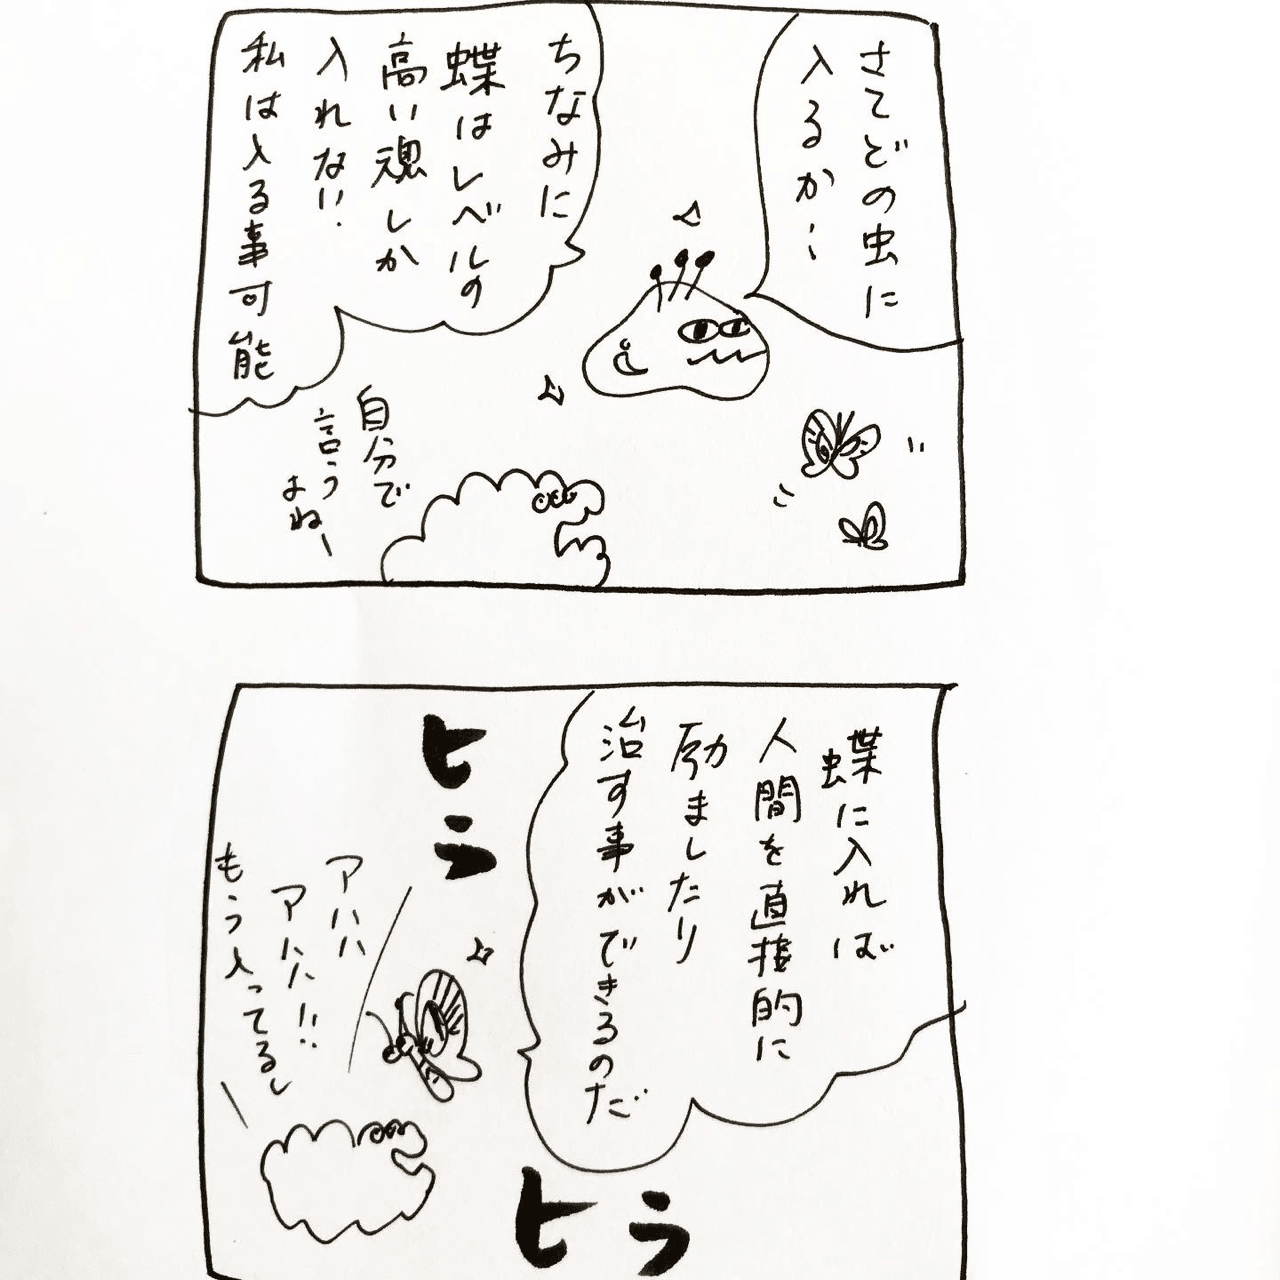 さてどの虫に
入るかー
ちなみに
蝶はレベルの
高い魂しか
入れない.
私は入る事可能
自分で
言う
よねー
蝶に入れば
人間を直接的に
励ましたり
治す事ができるのだ
ヒラ
ヒラ
アハハ
アハハ!!
もう入ってるし